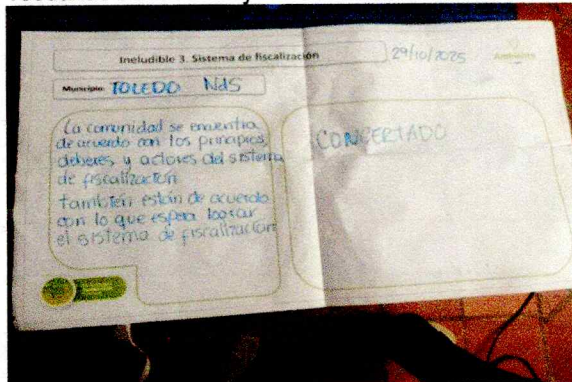 Ineludible 3. Sistema de fiscalización
29/10/2025
Ambiente
Municipio: TOLEDO NdS
La comunidad se encuentra
de acuerdo con los principios,
deberes y actores del sistema
de fiscalización
también están de acuerdo
con lo que espera lograr
el sistema de fiscalización
CONCERTADO